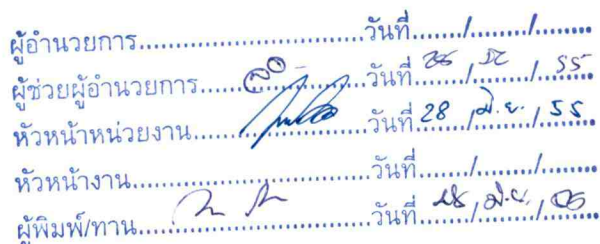 ผู้อำนวยการ..............................วันที่........./........./.........
ผู้ช่วยผู้อำนวยการ..............................วันที่ 28 / / 55
หัวหน้าหน่วยงาน..............................วันที่ 28 / มิ.ย. / 55
หัวหน้างาน..............................วันที่........./........./.........
ผู้พิมพ์/ทาน..............................วันที่ 28 / มิ.ย. /